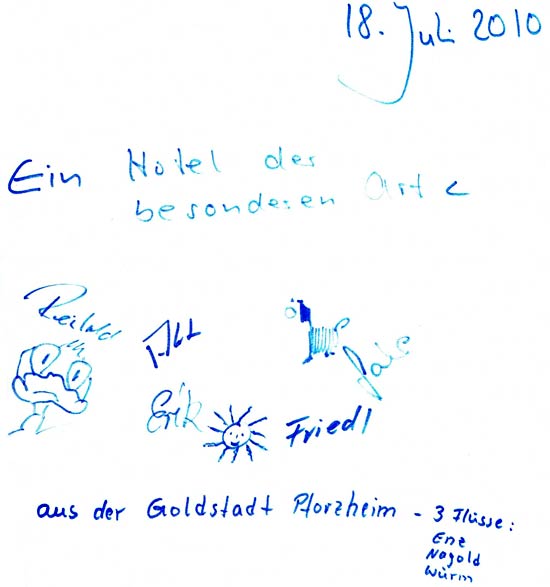 18. Juli 2010
Ein Hotel der
besonderen Art
Erik
Friedl
aus der Goldstadt Pforzheim - 3 Flüsse:
Enz
Nagold
Würm